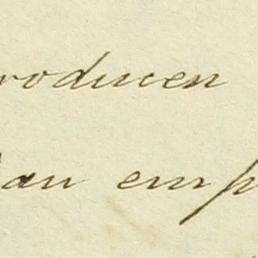 roducen
an emp